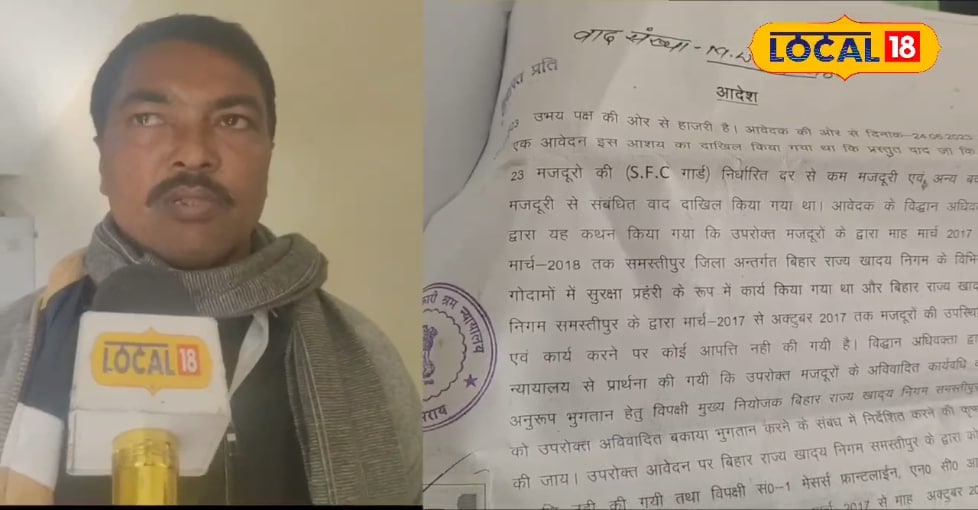 LOCAL 18
LOCAL 18
वाद संख्या-
प्रति
आदेश
उभय पक्ष की ओर से हाजरी है। आवेदक की ओर से दिनांक-24.06.2023
एक आवेदन इस आशय का दाखिल किया गया था कि प्रस्तुत वाद जो कि
23 मजदूरो की (S.F.C गार्ड) निर्धारित दर से कम मजदूरी एवं अन्य
मजदूरी से संबंधित वाद दाखिल किया गया था। आवेदक के विद्वान
द्वारा यह कथन किया गया कि उपरोक्त मजदूरों के द्वारा माह मार्च 2017
मार्च-2018 तक समस्तीपुर जिला अन्तर्गत बिहार राज्य खादय निगम के
गोदामों में सुरक्षा प्रहंरी के रूप में कार्य किया गया था और बिहार राज्य
निगम समस्तीपुर के द्वारा मार्च-2017 से अक्टुबर 2017 तक मजदूरों की
एवं कार्य करने पर कोई आपत्ति नही की गयी है। विद्वान अधिवक्ता
न्यायालय से प्रार्थना की गयी कि उपरोक्त मजदूरों के अविवादित कार्यवधि
अनुरूप भुगतान हेतु विपक्षी मुख्य नियोजक बिहार राज्य खादय निगम समस्तीपुर
को उपरोक्त अविवादित बकाया भुगतान करने के संबध में निर्देशित करने की
की जाय। उपरोक्त आवेदन पर बिहार राज्य खादय निगम समस्तीपुर के द्वारा
नही की गयी तथा विपक्षी सं0-1 मेसर्स फ्रान्टलाईन, एन0 सी0
2017 से माह अक्टुबर
श्रम न्यायालय